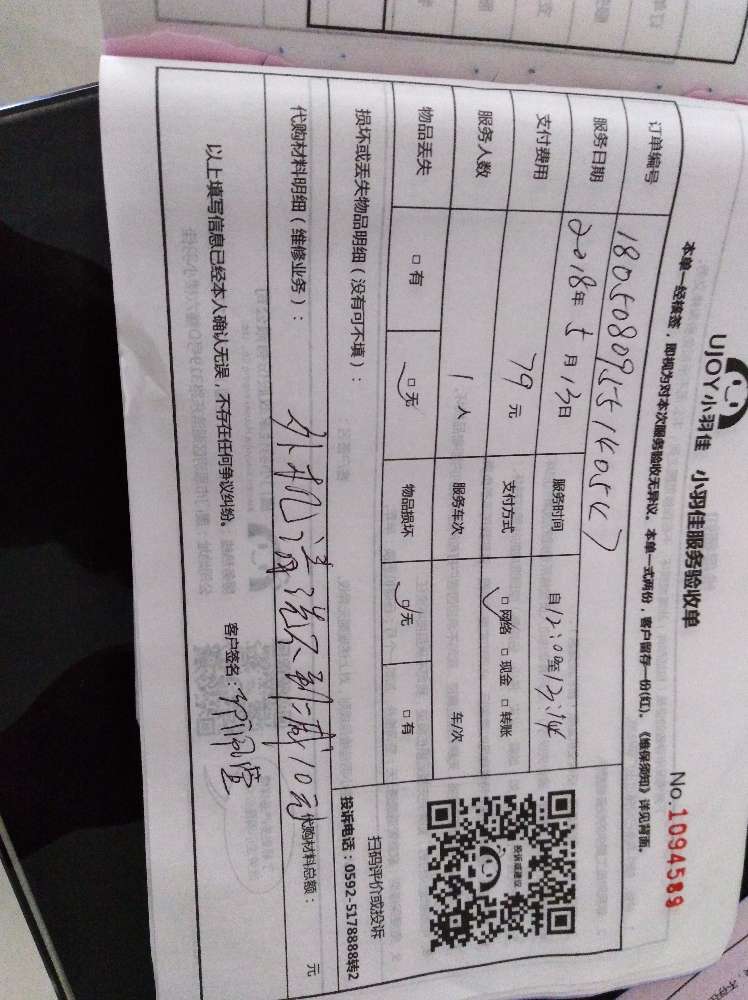 UJOY小羽佳 小羽佳服务验收单
No.1094589
本单一经核签，即视为对本次服务验收无异议。本单一式两份，客户留存一份(红)。《维保须知》详见背面。
订单编号
服务日期 2018年5月13日 服务时间 自12:00至13:14
支付费用 79元 支付方式 □网络 □现金 □转账
服务人数 1人 服务车次 车/次
物品丢失 □有 □无 物品损坏 □无 □有
投诉或建议
扫码评价或投诉
投诉电话：0592-5178888转2
损坏或丢失物品明细（没有可不填）：
代购材料明细（维修业务）：
外机清洗不到 减10元
代购材料总额： 元
以上填写信息已经本人确认无误，不存在任何争议纠纷。
客户签名：